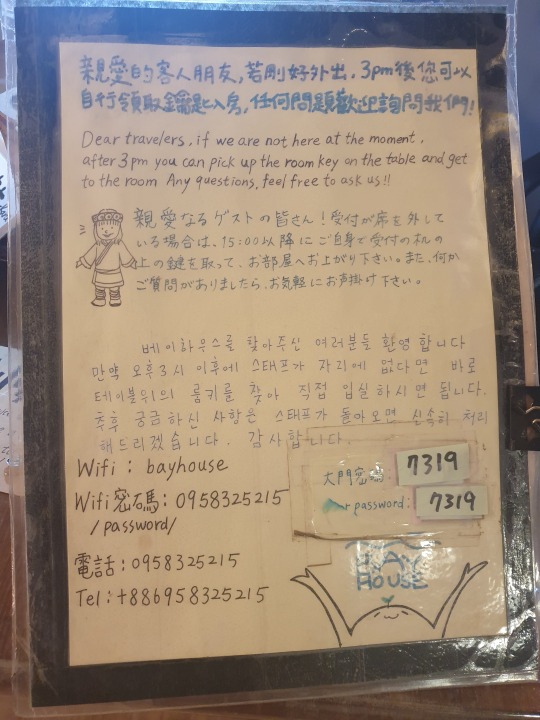 親愛的客人朋友,若剛好外出,3pm後您可以
自行領取鑰匙入房,任何問題歡迎詢問我們!
Dear travelers, if we are not here at the moment,
after 3pm you can pick up the room key on the table and get
to the room Any questions, feel free to ask us!!
親愛なるゲストの皆さん!受付が席を外して
いる場合は、15:00以降にご自身で受付の机の
上の鍵を取って、お部屋へお上がり下さい。また、何か
ご質問がありましたら、お気軽にお声掛け下さい。
베이하우스를 찾아주신 여러분들 환영합니다
만약 오후3시 이후에 스태프가 자리에 없다면 바로
테이블위의 룸키를 찾아 직접 입실하시면 됩니다.
추후 궁금하신 사항은 스태프가 돌아오면 신속히 처리
해드리겠습니다. 감사합니다.
Wifi : bayhouse
Wifi密碼:0958325215
/password/
電話:0958325215
Tel:+886958325215
大門密碼: 7319
r password: 7319
BAY
HOUSE